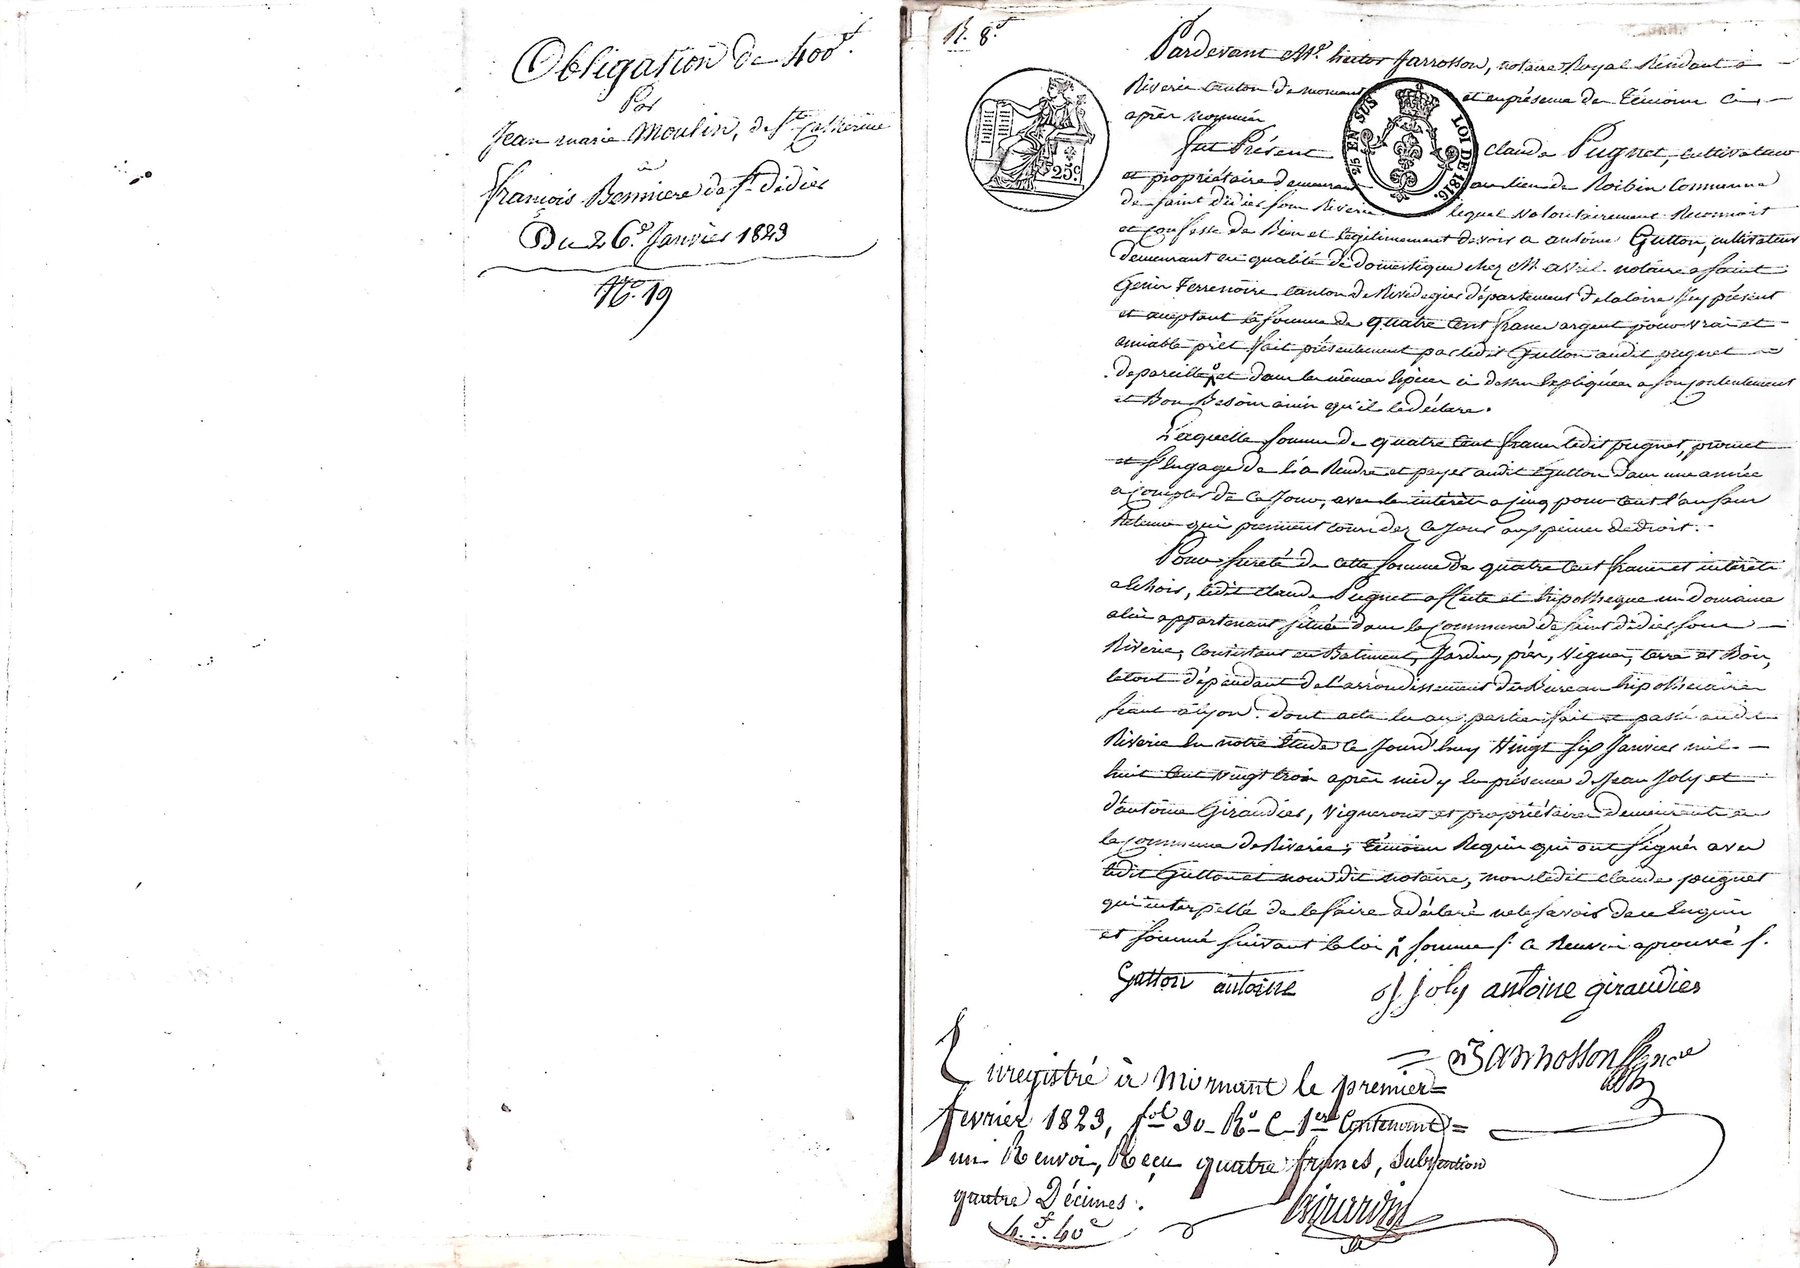 Obligation de 400f.
Par
Jean marie Moulin, de Ste Catherine
à
françois Bonniere de St. didier
Du 26.e Janvier 1823
No. 19
R. 8.f
Pardevant Me. hector Jarrosson, notaire Royal Résidant à
Riverie canton de mornant et en présence des Témoins ci-
après nommés
fut Présent claude Pugnet, cultivateur
et propriétaire demeurant au lieu de Roibin Commune
de saint didier sous Riverie lequel volontairement Reconnoit
et confesse de Bien et légitimement devoir a antoine Gutton, cultivateur
demeurant en qualité de domestique chez M. avril notaire a saint
Genis Terrenoire canton de Rivedegier département de la loire icy présent
et aceptant la somme de quatre cent francs argent pour vrai et
amiable prêt fait présentement par ledit Gutton audit pugnet
de pareille et dans les mêmes Espèces ci dessus Expliquées a son contentement
et Bon Besoin ainsi qu'il le déclare.
Laquelle somme de quatre cent francs ledit pugnet, promet
et s'Engage de la Rendre et payer audit Gutton dans une année
a compter de ce Jour, avec les intérêts a cinq pour cent l'an sans
Retenue qui prennent cours dez ce Jour aux peines de droit.
Pour sureté de cette somme de quatre cent francs et intérêts
a Echoir, ledit claude Pugnet affecte et hipotheque un domaine
a lui appartenant situé dans la Commune de saint didier sous
Riverie, Consistant en Batiment, Jardin, prés, Vignes, terre et Bois,
le tout dépendant de l'arrondissement du Bureau hipothécaire
séant à lyon. dont acte lu aux parties fait et passé audit
Riverie En notre Etude ce Jourd'huy Vingt six Janvier mil
huit cent vingt trois après midy En présence de Jean Joly et
d'antoine Giraudier, Vignerons et propriétaires demeurants en
la Commune de Riverie, témoins Requis qui ont signés avec
ledit Gutton et nous dit notaire, non ledit claude pugnet
qui interpellé de le faire a déclaré ne le savoir de ce Enquis
et sommé suivant la loi somme f. ce Renvoi aprouvé f.
25 EN SUS
LOI DE 1816.
25c.
Gutton antoine J Joly antoine giraudier
Jarrosson
Enregistré à Mornant le premier
fevrier 1823, fol 30 Ro C 1ere Contenant
un Renvoi, Reçu quatre francs, subvention
quatre Décimes.
4.f..40c
Girardin